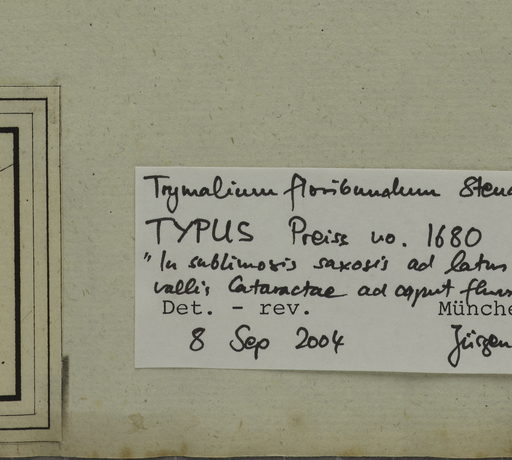 Trymalium floribundum Steud
TYPUS Preiss no. 1680
"In sublimosis saxosis ad latus
vallis Cataractae ad caput flum
Det. - rev. Münche
8 Sep 2004 Jürgen